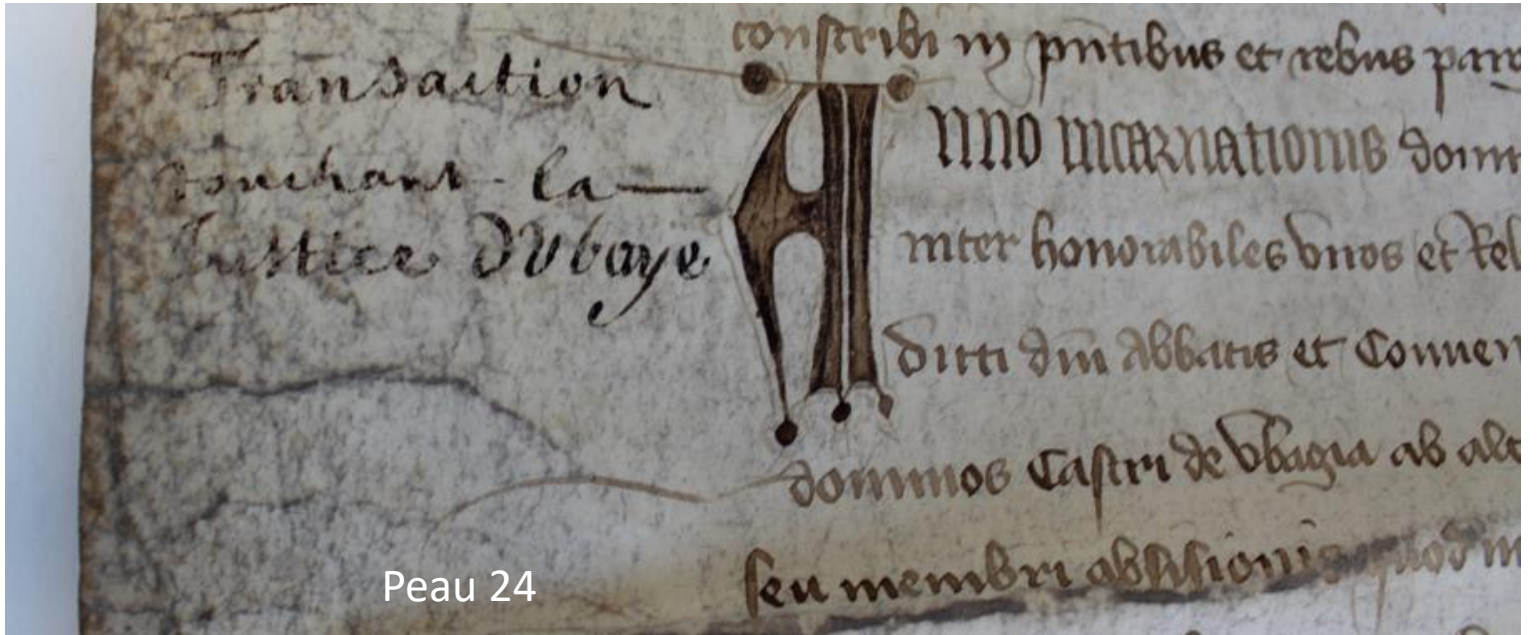 Transaction
touchant la
Justice d'Ubaye
constribi in pntibus et rebus
Anno incarnationis
inter honorabiles viros et
dicti dni Abbatis et Conven
dominos Castri de Ubagia ab
seu membri abscisionis quod
Peau 24